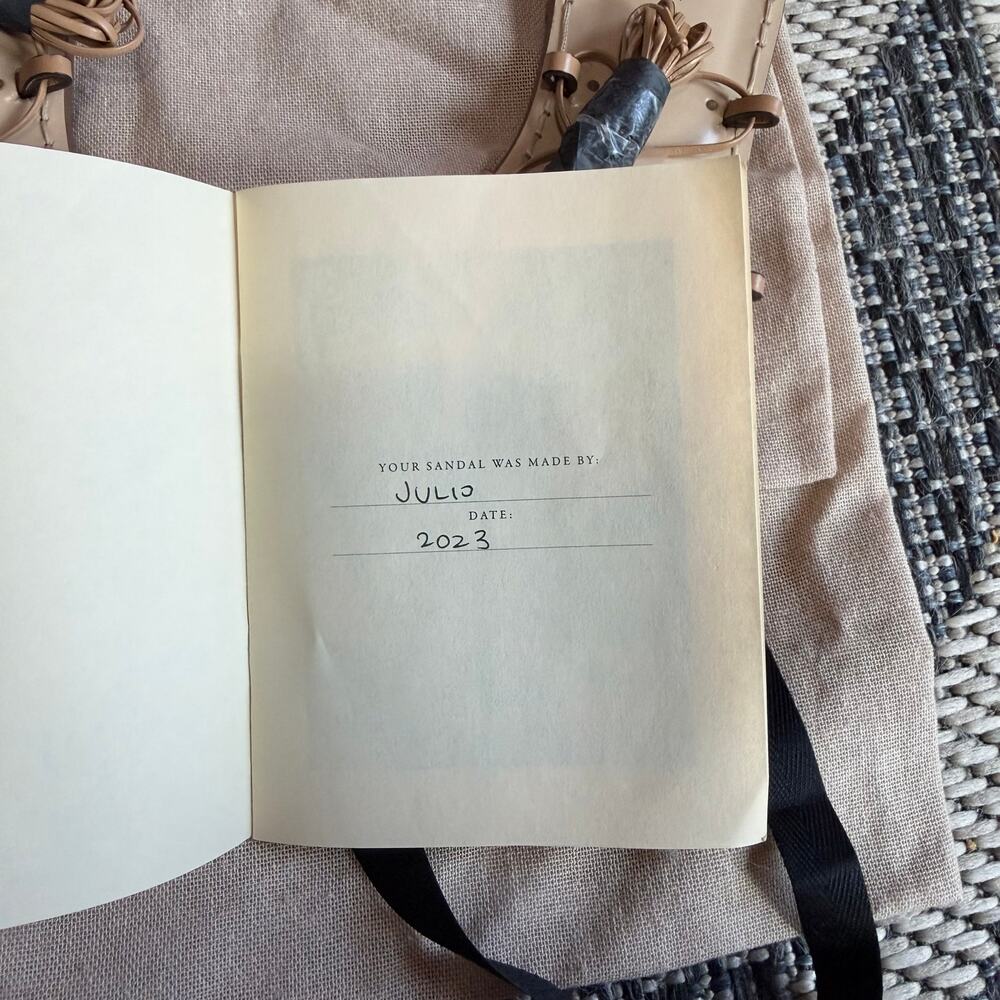 YOUR SANDAL WAS MADE BY:
JULIO
DATE:
2023